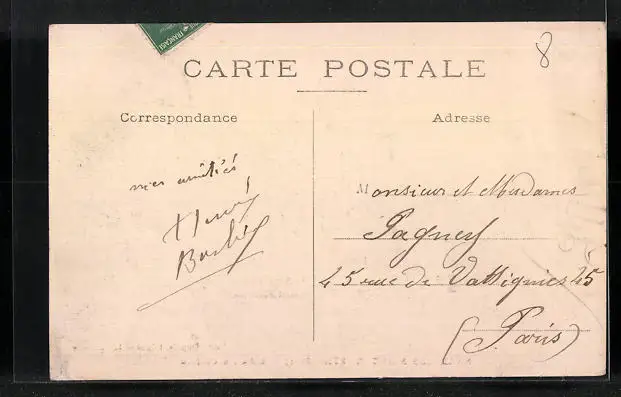 8
CARTE POSTALE
Correspondance
mes amitiés
Henri
Adresse
Monsieur et Mesdames
Pagney
45 rue de Wattignies 45
(Paris)